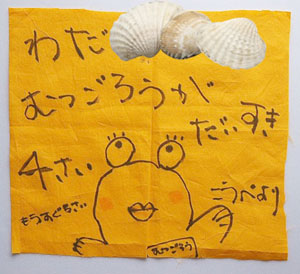 わだ
むつごろうが
だいすき
4さい
もうすぐ5さい
こうべより
むつごろう